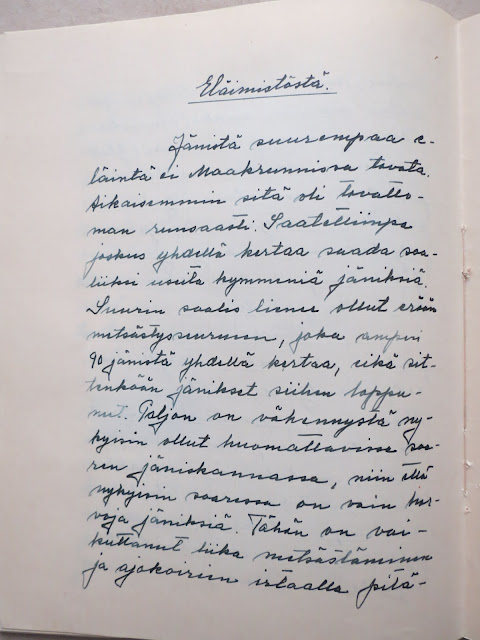 Eläimistöstä.
Jänistä suurempaa e-
läintä ei Maakrunnissa tavata.
Aikaisemmin sitä oli tavatto-
man runsaasti. Saatettiinpa
joskus yhdellä kertaa saada saa-
liiksi useita kymmeniä jäniksiä.
Suurin saalis lienee ollut erään
metsästysseurueen, joka ampui
90 jänistä yhdellä kertaa, eikä sit-
tenkään jänikset siihen loppu-
neet. Paljon on vähennystä ny-
kyisin ollut huomattavissa saa-
ren jäniskannassa, niin että
nykyisin saaressa on vain har-
voja jäniksiä. Tähän on vai-
kuttanut liika metsästäminen
ja ajokoirien irtaalla pitä-